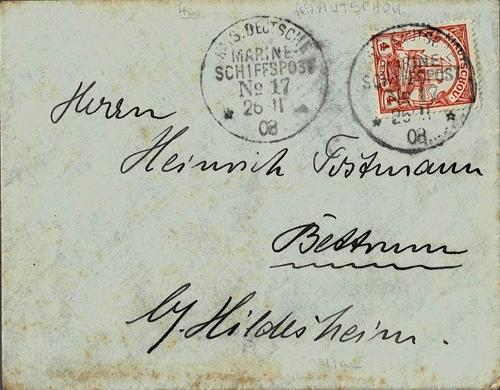 KIAUTSCHOU
K. D. DEUTSCHE
MARINE-
SCHIFFSPOST
No 17
26 11
08
MARINE
SCHIFFSPOST
No 17
26 11
08
4
KIAUTSCHOU
Herrn
Heinrich Tostmann
Bettrum
b/. Hildesheim.